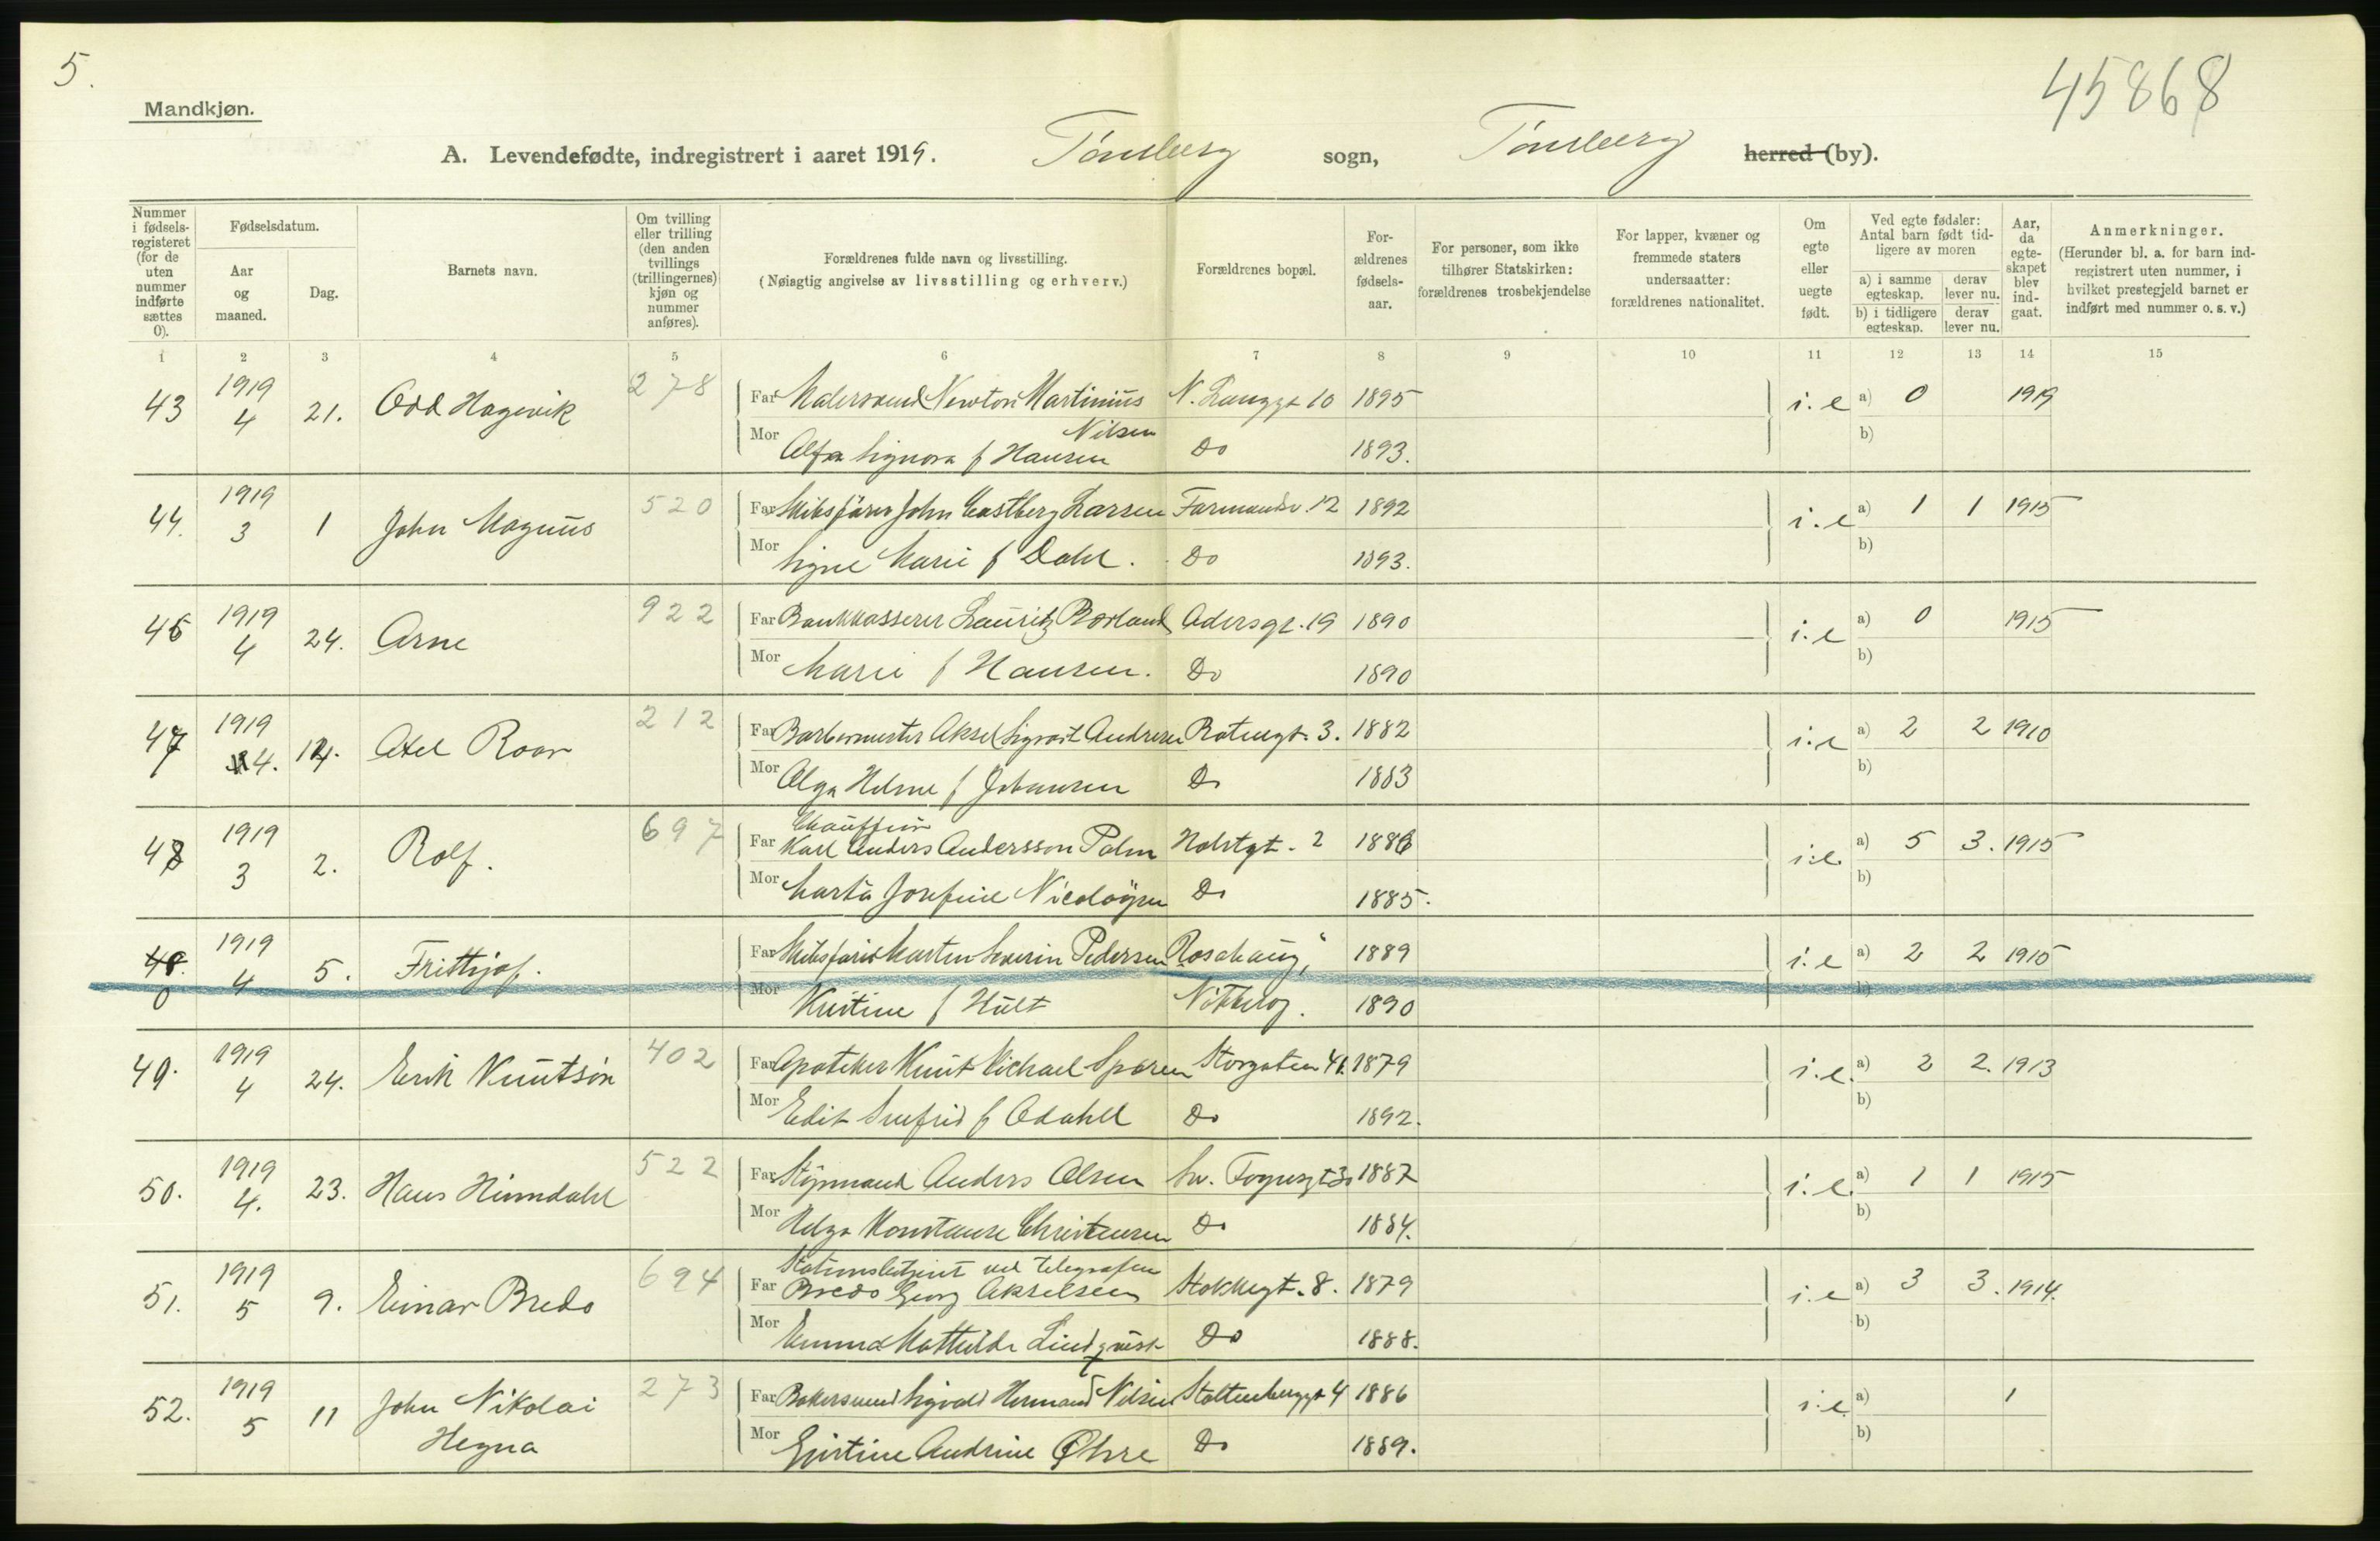 5.
45868
Mandkjøn.
A. Levendefødte, indregistrert i aaret 1919. Tønsberg sogn, Tønsberg herred (by).
Nummer i fødsels-registeret (for de uten nummer indførte sættes 0).
Fødselsdatum.
Aar og maaned.
Dag.
Barnets navn.
Om tvilling eller trilling (den anden tvillings (trillingernes) kjøn og nummer anføres).
Forældrenes fulde navn og livsstilling.
(Nøiagtig angivelse av livsstilling og erhverv.)
Forældrenes bopæl.
For-ældrenes fødsels-aar.
For personer, som ikke tilhører Statskirken: forældrenes trosbekjendelse
For lapper, kvæner og fremmede staters undersaatter: forældrenes nationalitet.
Om egte eller uegte født.
Ved egte fødsler: Antal barn født tid-ligere av moren
a) i samme egteskap. derav lever nu.
b) i tidligere egteskap. derav lever nu.
Aar, da egte-skapet blev ind-gaat.
Anmerkninger.
(Herunder bl. a. for barn ind-registrert uten nummer, i hvilket prestegjeld barnet er indført med nummer o. s. v.)
1 2 3 4 5 6 7 8 9 10 11 12 13 14 15
43 1919 4 21. Odd Hagevik 278 Far Malersvend Newton Martinius Nilsen N. Langgt 10 1895 i. e a) 0 1919
Mor Alfa Signora f Hansen Do 1893. b)
44. 1919 3 1 John Magnus 520 Far Skibsfører John Castberg Larsen Farmandsv. 12 1892 i. e a) 1 1 1915
Mor Signe Marie f Dahl. Do 1893. b)
46 1919 4 24. Arne 922 Far Bankkasserer Lauritz Borland 19 1890 i. e a) 0 1915
Mor Marie f Hansen. Do 1890 b)
47 1919 4. 14. Axel Roar 212 Far Barbermester Aksel Sigvart Andresen 3. 1882 i. e a) 2 2 1910
Mor Olga Helene f Johansen Do 1883 b)
48 1919 3 2. Rolf. 697 Chauffør
Far Karl Anders Andersson Palm Holstgt. 2 1886 i. e. a) 5 3. 1915
Mor Marta Josefine Nicolaysen Do 1885. b)
48. 0 1919 4 5. Frithjof. Far Skibsfører Marten Severin Pedersen Rosehaug, 1889 i. e a) 2 2 1915
Mor Kristine f Hult Nøtterø. 1890 b)
49. 1919 4 24. Erik Knutsøn 402 Far Apoteker Knut Michael Sparen Storgaten 41. 1879 i. e. a) 2 2. 1913
Mor Edit f Odahll Do 1892. b)
50. 1919 4. 23. Hans Himndahl 522 Far Styrmand Anders Olsen Sv. Foynsgt 3. 1887 i. e. a) 1 1 1915
Mor Helga Konstanse Christensen Do 1884. b)
51. 1919 5 9. Einar Bredo 694 Stationsbetjent ved telegrafen
Far Bredo Georg Akselsen Stokkegt. 8. 1879 i. e a) 3 3. 1914.
Mor Emma Mathilde Lindqvist Do 1888. b)
52. 1919 5 11 John Nikolai Hegna 273 Far Bakersvend Sigvald Hermand Nilsen Stoltenberggt 4 1886 i. e. a) 1
Mor Andrine Øhre Do 1889. b)